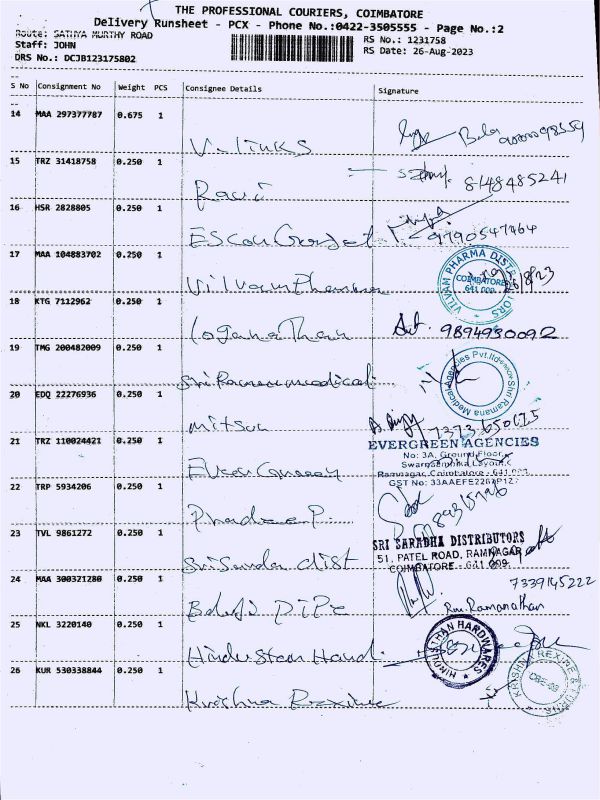 THE PROFESSIONAL COURIERS, COIMBATORE
Delivery Runsheet - PCX - Phone No.:0422-3505555 - Page No.:2
Route: SATHYA MURTHY ROAD
RS No.: 1231758
Staff: JOHN
RS Date: 26-Aug-2023
DRS No.: DCJB123175802
S No Consignment No Weight PCS Consignee Details Signature
14 MAA 297377787 0.675 1
V-links
15 TRZ 31418758 0.250 1
Ravi 8148485241
16 HSR 2828805 0.250 1
9790547464
17 MAA 104883702 0.250 1
Vilvam Pharma
VILVAM PHARMA DISTRIBUTORS
COIMBATORE
641 009
26/8/23
18 KTG 7112962 0.250 1
Loganathan 9894930092
19 TMG 200482009 0.250 1
Sri Ramana medical
Shri Ramana Medical Agencies Pvt.ltd
20 EDQ 22276936 0.250 1
mitsu 7373650675
21 TRZ 110024421 0.250 1
EVERGREEN AGENCIES
No: 3A, Ground Floor,
Swarnambika Layout,
Ramnagar, Coimbatore - 641 009
GST No: 33AAEFE2267P1Z
22 TRP 5934206 0.250 1
Pradeep P.
23 TVL 9861272 0.250 1
dist
SRI SARADHA DISTRIBUTORS
51, PATEL ROAD, RAMNAGAR
COIMBATORE - 641 009
24 MAA 300321280 0.250 1
7339145222
Balaji Pipe
Ramanathan
25 NKL 3220140 0.250 1
Hindustan Hard.
HINDUSTHAN HARDWARES
26 KUR 530338844 0.250 1
Krishna Rexine
KRISHNA REXINE & FURNS
CBE-09